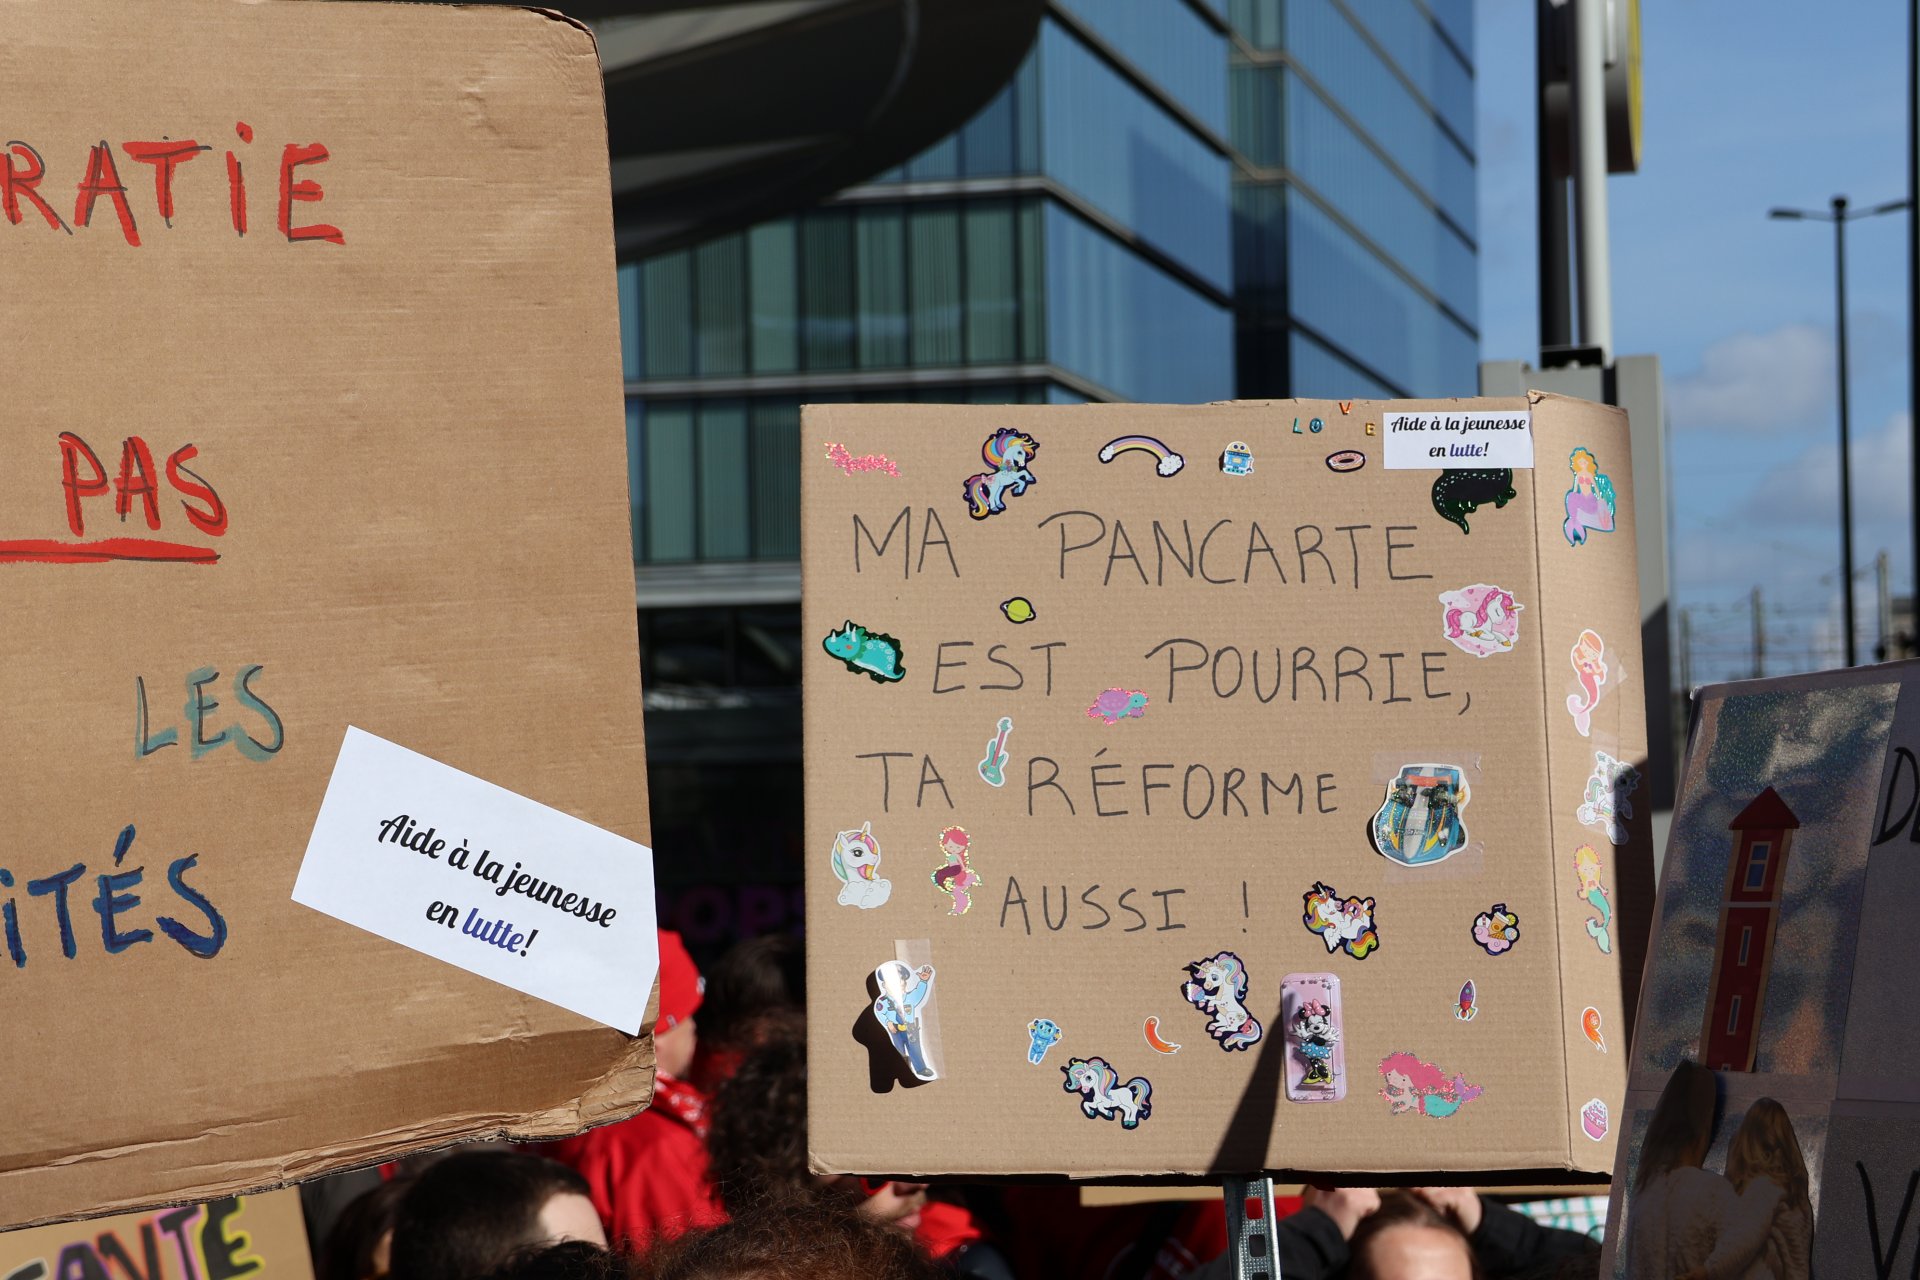 RATiE
PAS
LES
iTÉS
Aide à la jeunesse
en lutte!
LOVE
Aide à la jeunesse
en lutte!
MA PANCARTE
EST POURRIE,
TA RÉFORME
AUSSI !